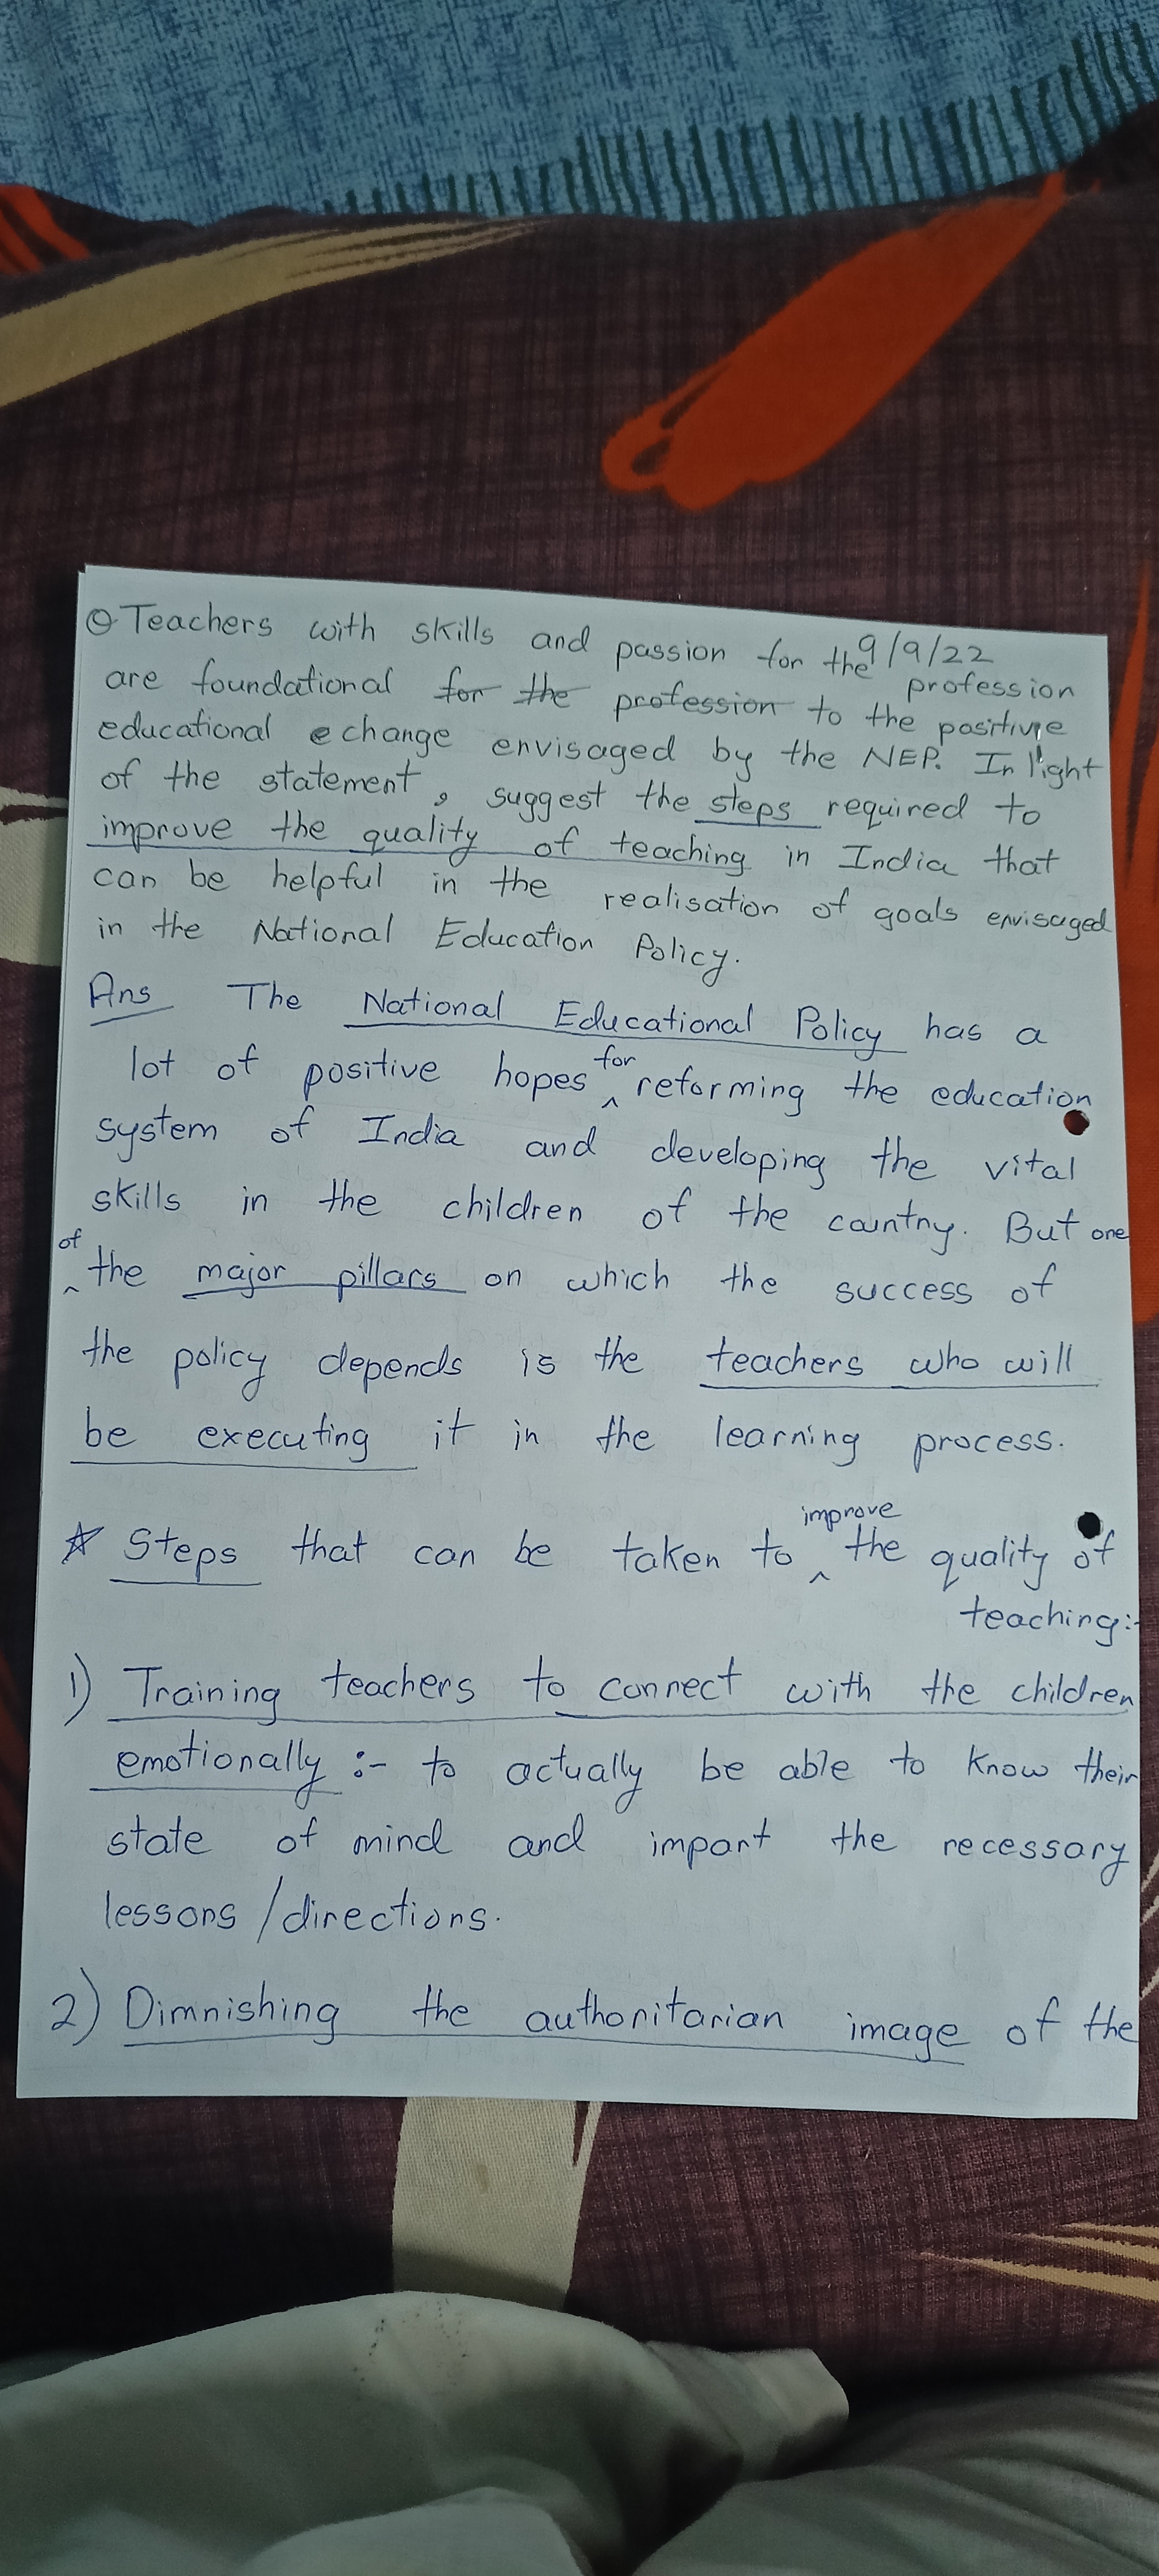 Q Teachers with skills and passion for the profession
9/9/22
are foundational for the profession to the positive
educational e change envisaged by the NEP. In light
of the statement, suggest the steps required to
improve the quality of teaching in India that
can be helpful in the realisation of goals envisaged
in the National Education Policy.
Ans The National Educational Policy has a
lot of positive hopes for reforming the education
system of India and developing the vital
skills in the children of the country. But one
of the major pillars on which the success of
the policy depends is the teachers who will
be executing it in the learning process.
☆ Steps that can be taken to improve the quality of
teaching:-
1) Training teachers to connect with the children
emotionally :- to actually be able to know their
state of mind and impart the necessary
lessons/directions.
2) Dimnishing the authoritarian image of the